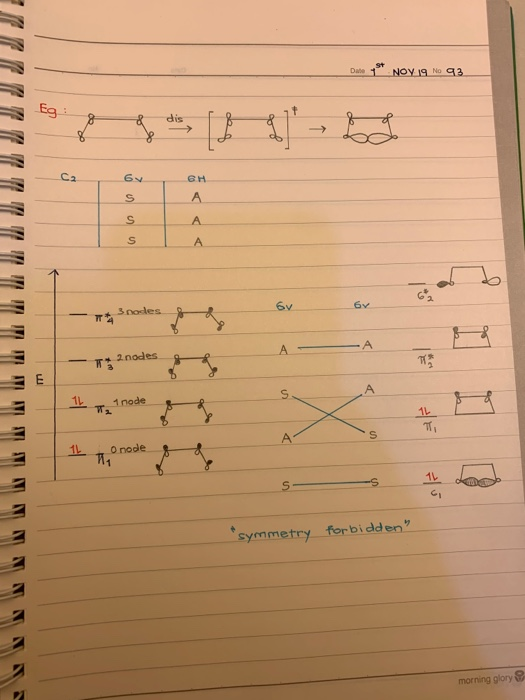 Date 1st NOV 19 No 93
Eg:
dis
‡
C2 σv σH
S A
S A
S A
E
π*4 3 nodes
π*3 2 nodes
1L π2 1 node
1L π1 0 node
σv σv
A A
S A
A S
S S
σ*2
π*2
1L π1
1L σ1
"symmetry forbidden"
morning glory